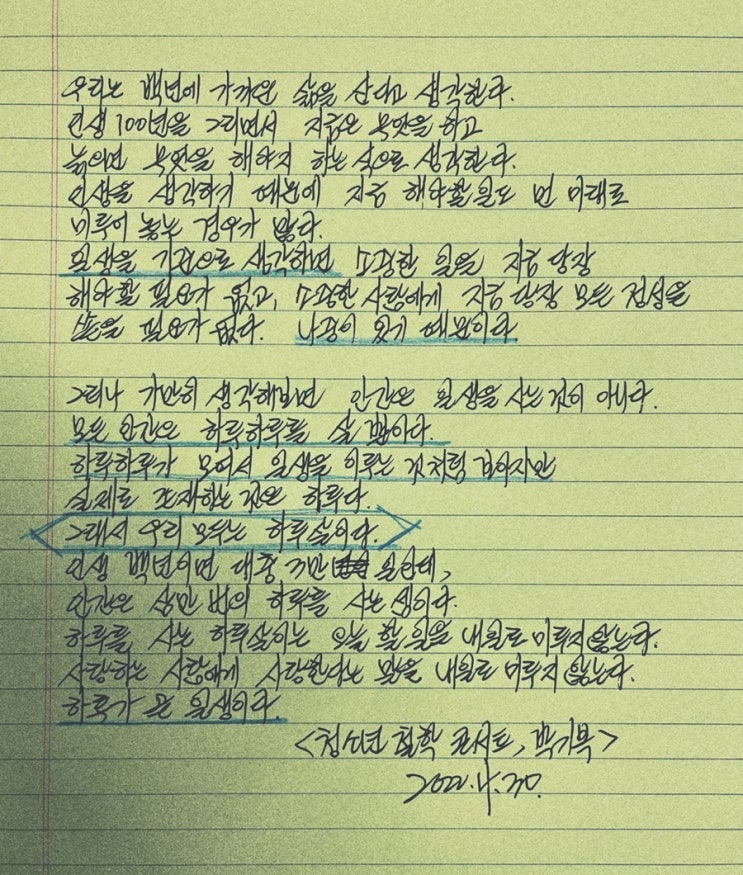 우리는 백년에 가까운 삶을 산다고 생각한다.
인생 100년을 그리면서 지금은 무엇을 하고
늙으면 무엇을 해야지 하는 식으로 생각한다.
인생을 생각하기 때문에 지금 해야할 일도 먼 미래로
미루어 놓는 경우가 많다.
일생을 기준으로 생각하면 소중한 일을 지금 당장
해야할 필요가 없고, 소중한 사람에게 지금 당장 모든 정성을
쏟을 필요가 없다. 나중이 있기 때문이다.
그러나 가만히 생각해보면 인간은 일생을 사는 것이 아니다.
모든 인간은 하루하루를 살 뿐이다.
하루하루가 모여서 일생을 이루는 것처럼 보이지만
실제로 존재하는 것은 하루다.
그래서 우리 모두는 하루살이다.
인생 백년이면 대충 3만 일인데,
인간은 삼만 번의 하루를 사는 셈이다.
하루를 사는 하루살이는 오늘 할 일을 내일로 미루지 않는다.
사랑하는 사람에게 사랑한다는 말을 내일로 미루지 않는다.
하루가 곧 일생이다.
<청소년 철학 콘서트, 박기복>